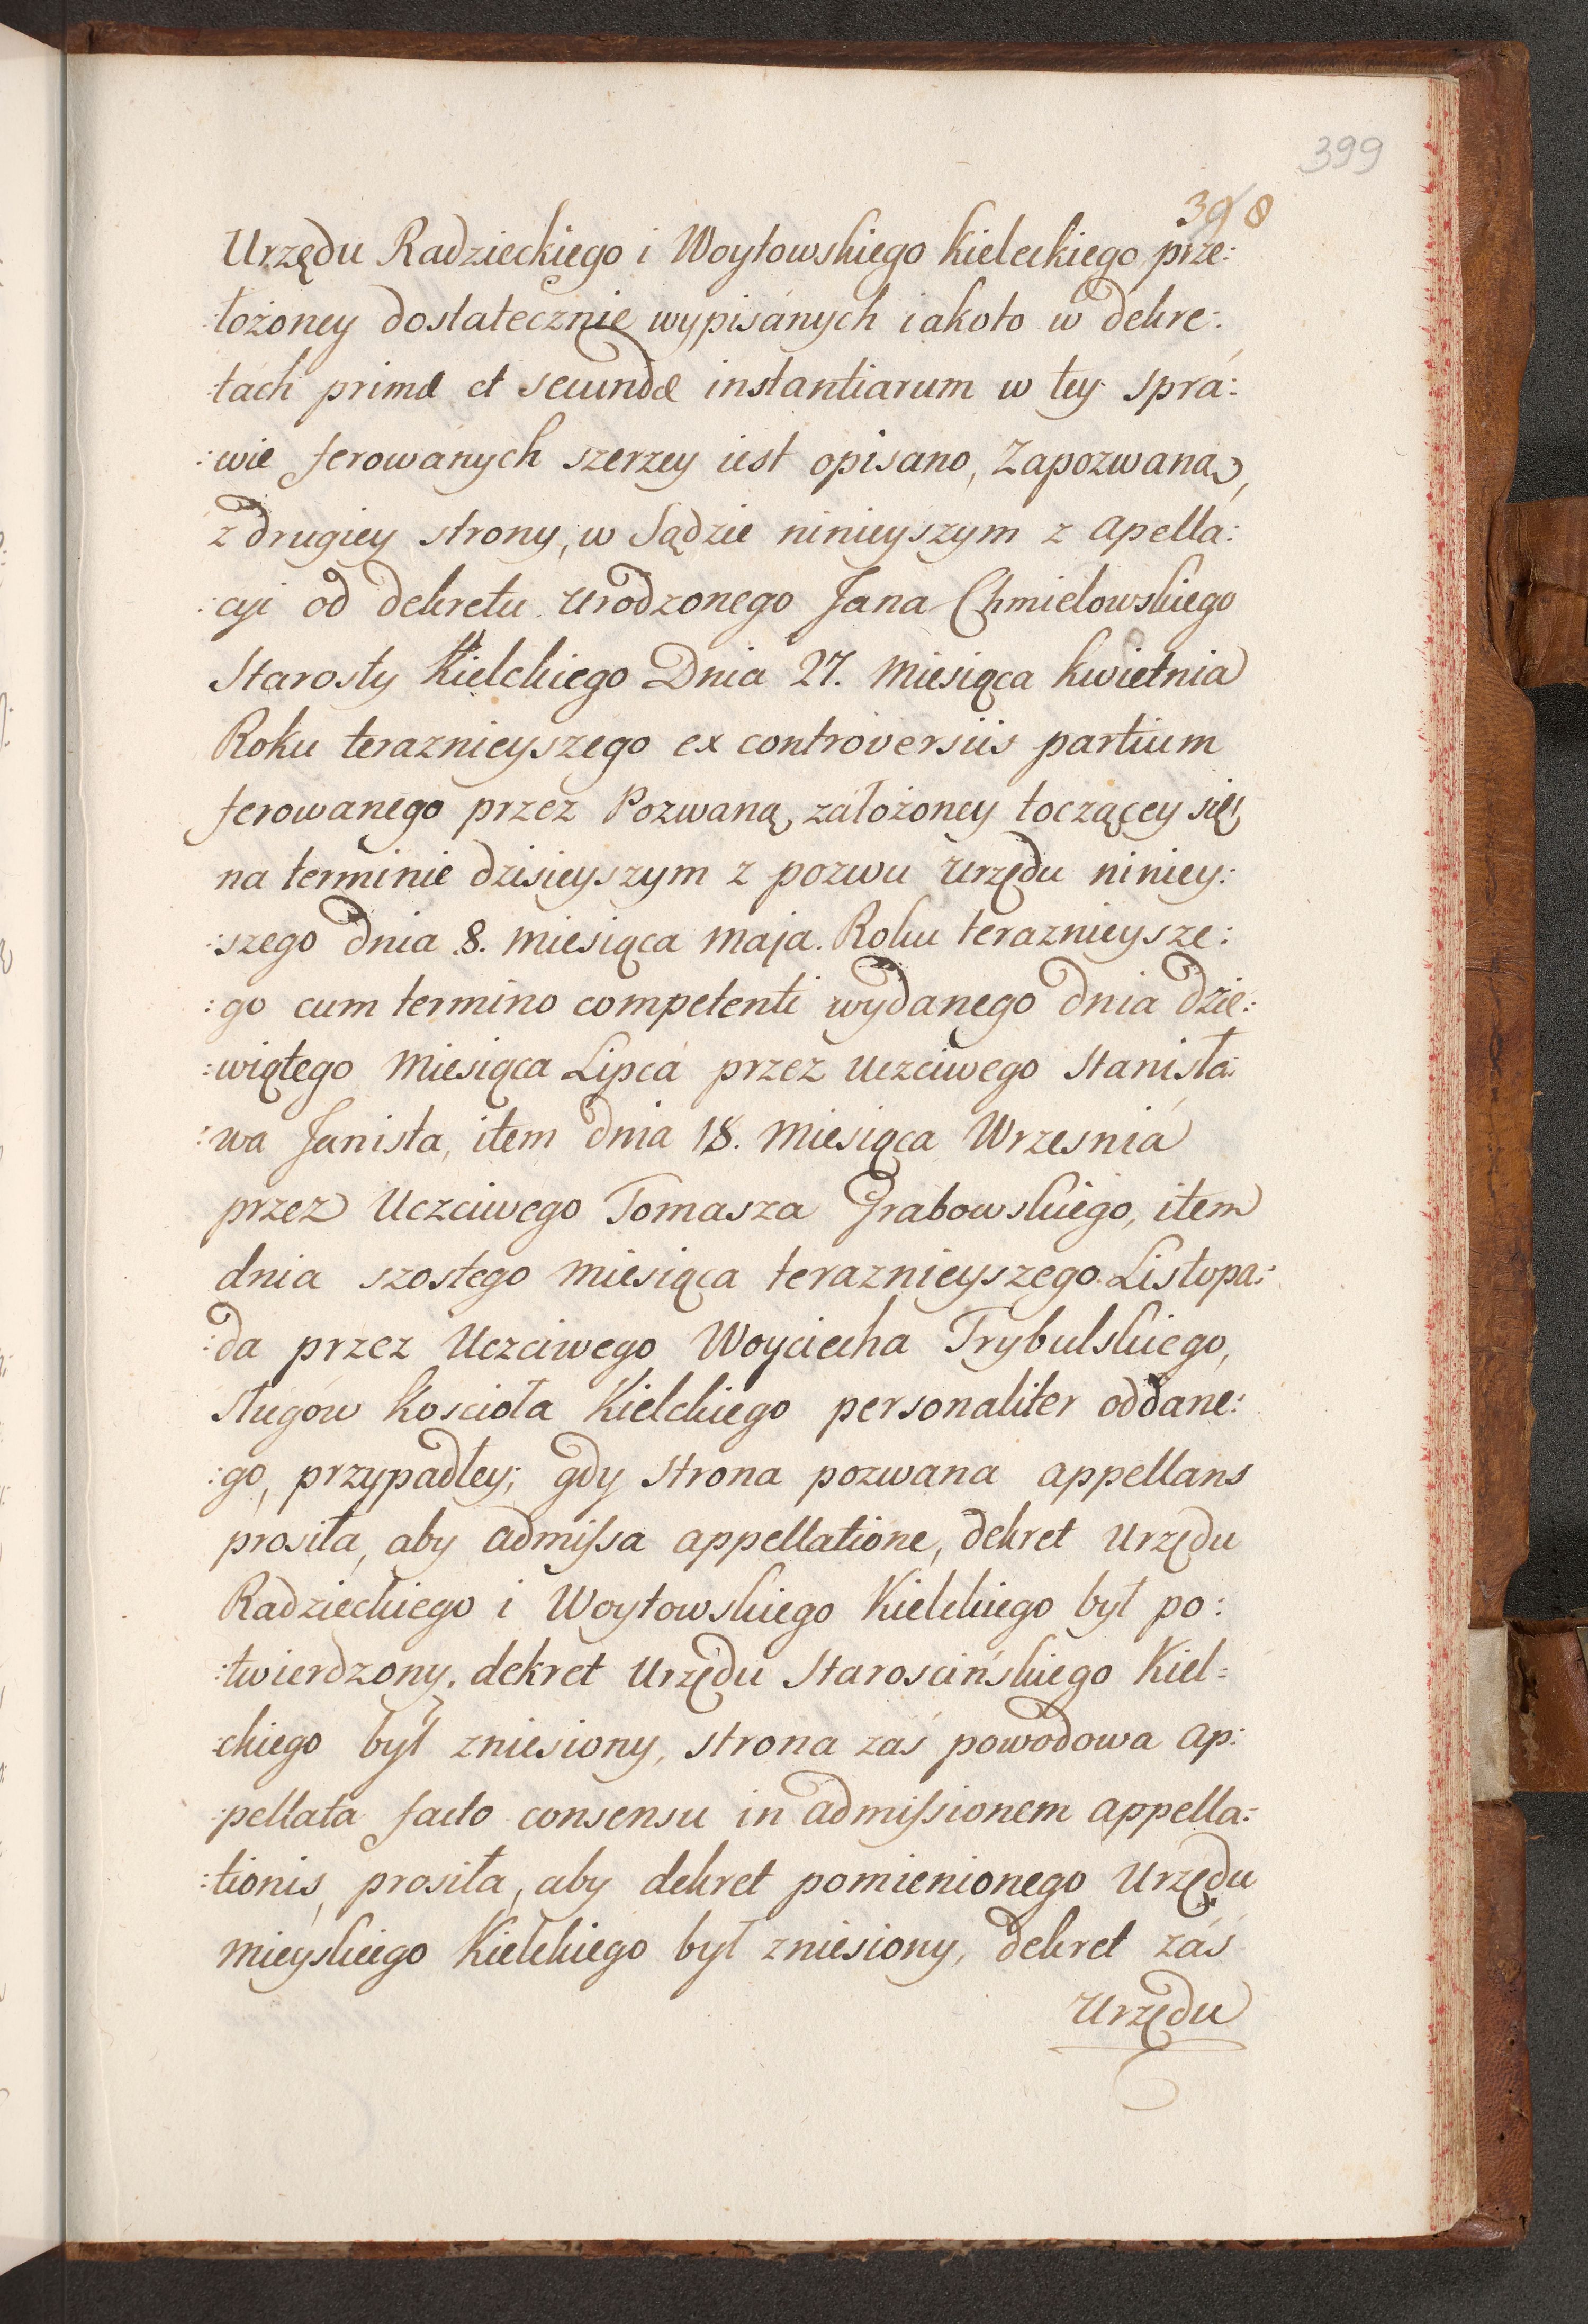 399
398
Urzędu Radzieckiego i Woytowskiego Kieleckiego prze:
:łożoney dostatecznie wypisánych iakoto w dekre:
:tách primæ et secundæ instantiarum w tey sprá:
:wie ferowánych szerzey iest opisano, Zapozwaną,
z drugiey strony, w Sądzie ninieyszym z apella:
:cyi od dekretu urodzonego Jana Chmielowskiego
Starosty Kielckiego Dnia 27. Miesiąca kwietnia
Roku teraznieyszego ex controversiis partium
ferowanego przez Pozwaną założoney toczącey się,
na terminie dzisieyszym z pozwu Urzędu niniey:
:szego dnia 8. Miesiąca Maja. Roku teraznieysze:
:go cum termino competenti wydanego dnia dzie:
:wiątego Miesiąca Lipcá przez Uczciwego Stanisła:
:wa Janista, item dnia 18. Miesiąca Wrzesniá
przez Uczciwego Tomasza Grabowskiego, item
dnia szostego Miesiąca teraznieyszego Listopa:
:da przez Uczciwego Woyciecha Trybulskiego,
sługów Koscioła Kielckiego personaliter oddane:
:go, przypadłey; gdy Strona pozwana appellans
prosiła, aby admissa appellatione, dekret Urzędu
Radzieckiego i Woytowskiego Kielckiego był po:
:twierdzony. dekret Urzędu Starościńskiego Kiel:
:ckiego był zniesiony, strona zaś powodowa ap:
:pellata facto consensu in admissionem appella:
:tionis, prosiła, aby dekret pomienionego Urzędu
Mieyskiego Kielckiego był zniesiony, dekret záś
Urzędu